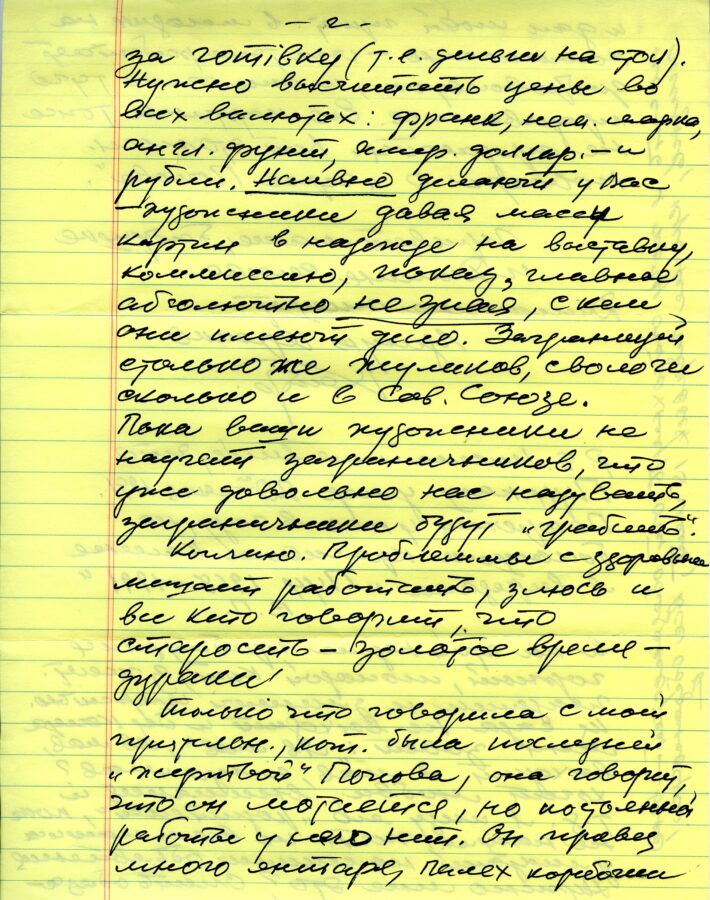 - 2 -
за готівку (т.е. деньги на стол).
Нужно высчитать цены во
всех валютах: франк, нем. марка,
англ. фунт, амер. доллар. — и
рубли. Наивно делают у Вас
художники давая массы
картин в надежде на выставку,
комиссию, показ, главное
абсолютно не зная, с кем
они имеют дело. Заграницей
столько же жуликов, сволочи
сколько и в Сов. Союзе.
Пока ваши художники не
научат заграничников, что
уже довольно нас надувать,
заграничники будут "грабить".
Кончаю. Проблеммы с здоровьем
мешает работать, злюсь и
все кто говорит, что
старость — золотое время —
дураки!
Только что говорила с моей
приятельн., кот. была последней
"жертвой" Попова, она говорит,
что он мотается, но постоянной
работы у него нет. Он привез
много янтаря, Палех коробочки